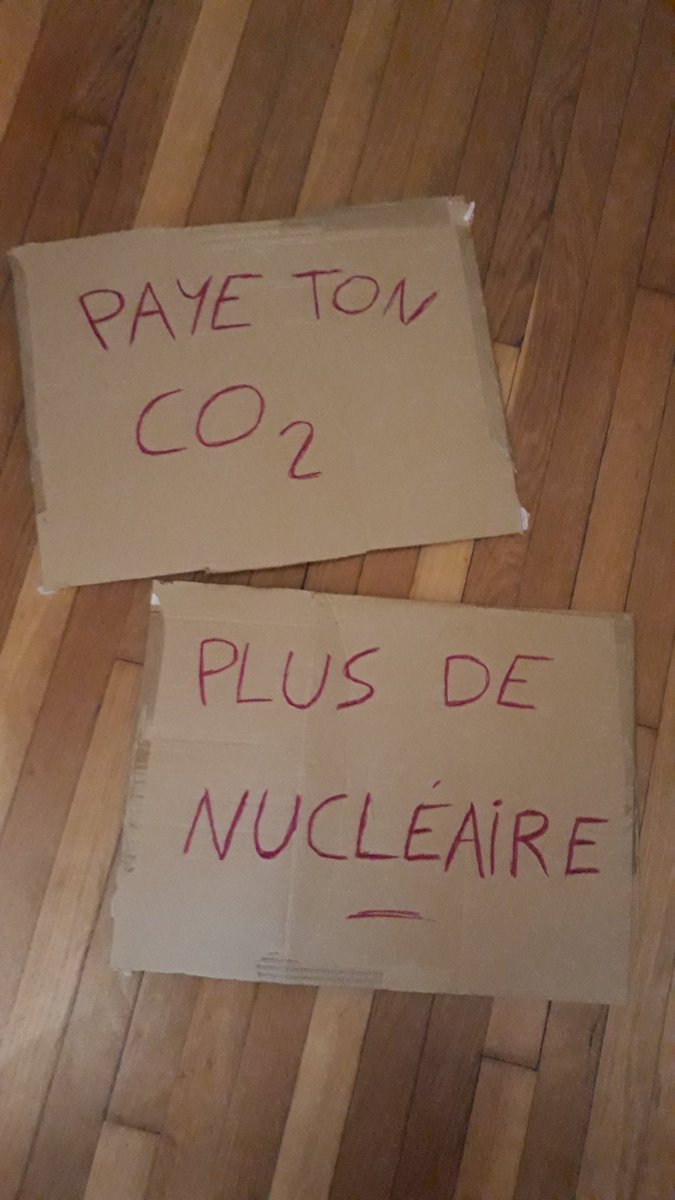 PAYE TON
CO₂
PLUS DE
NUCLÉAIRE